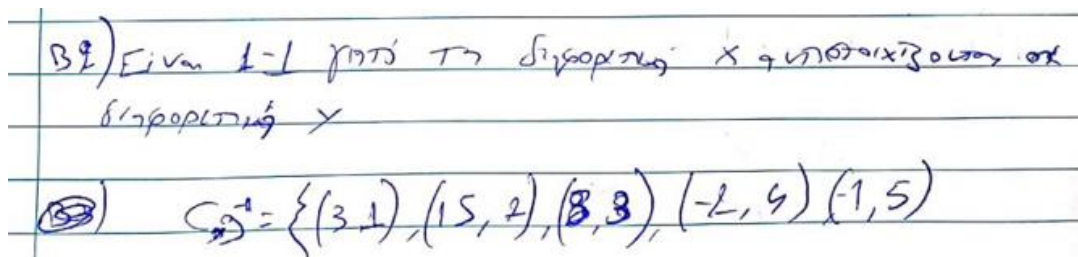 Β2) Είναι 1-1 γιατί τα διαφορετικά x αντιστοιχίζονται σε
διαφορετικά y
C_g⁻¹ = {(3,1), (15, 2), (8, 3), (-2, 4) (-1, 5)